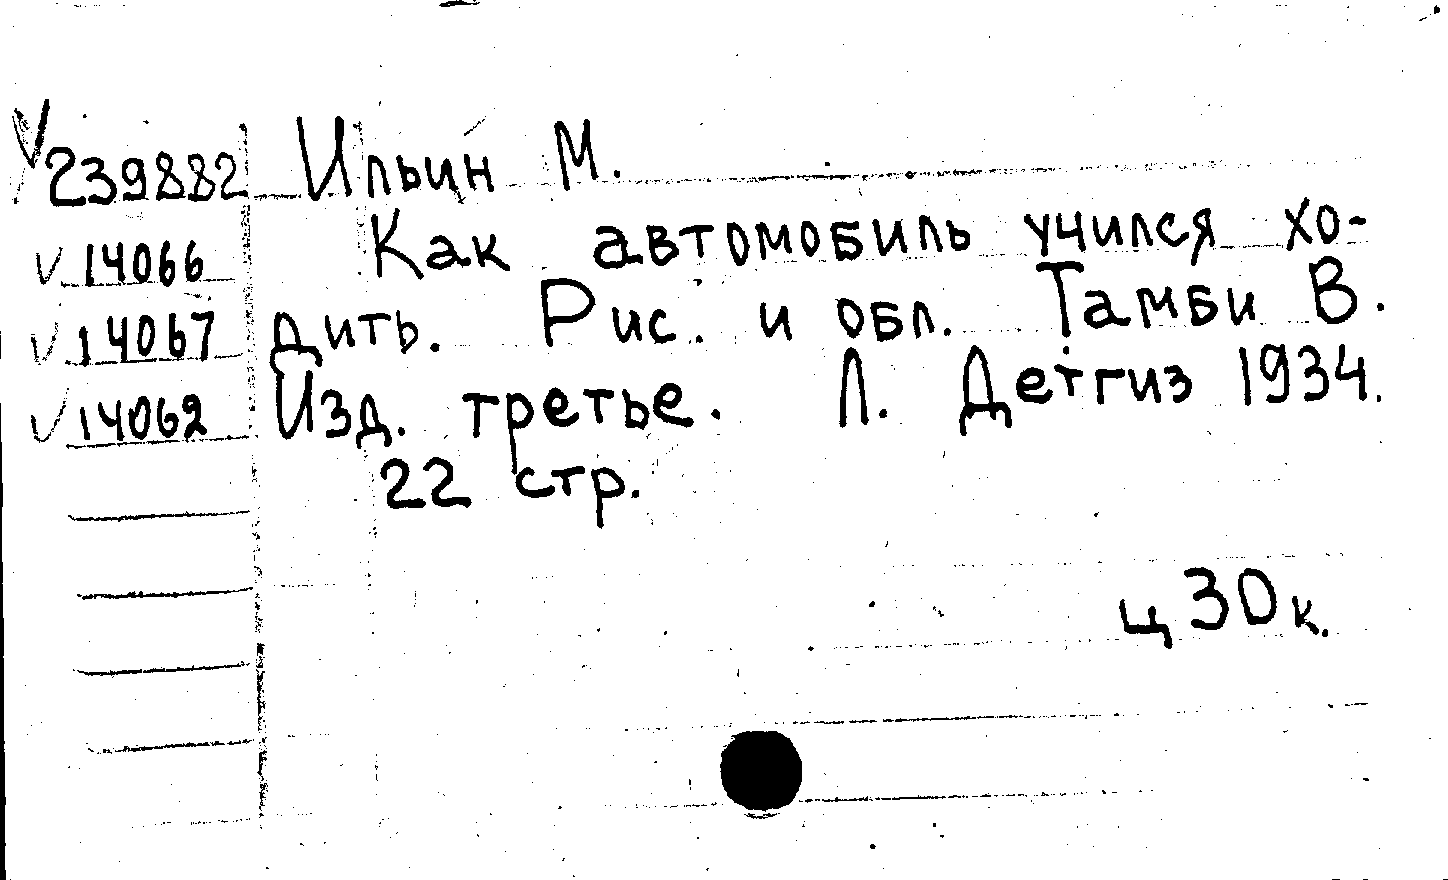 V 239882 Ильин М.
V 14066 Как автомобиль учился хо-
V 14067 дить. Рис. и обл. Тамби В.
V 14062 Изд. третье. Л. Детгиз 1934.
22 стр.
ц 30 к.